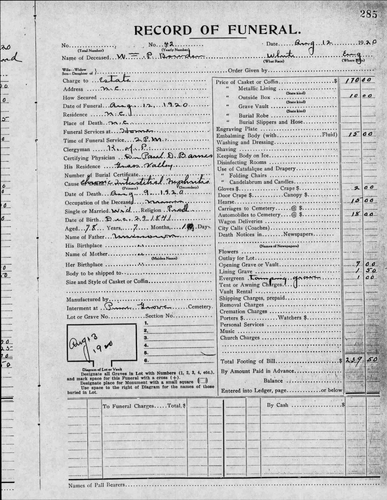 285
RECORD OF FUNERAL.
No.
(Total Number)
No. 92
(Yearly Number)
Date Aug 12 1920
Name of Deceased Wm P. Bowden
White
(What Race)
Wife - Widow
Son - Daughter of
Order Given by
Charge to Estate
Address N.C.
How Secured
Date of Funeral Aug. 12, 1920
Residence N.C.
Place of Death N.C.
Funeral Services at Home
Time of Funeral Service 2 P.M.
Clergyman K. of P.
Certifying Physician Dr. Paul D. Barnes
His Residence
Number of Burial Certificate
Cause of Death Chronic Interstitial Nephritis
Date of Death Aug 9, 1920
Occupation of the Deceased
Single or Married Wid. Religion Prot
Date of Birth Dec. 29, 1841
Aged 78 Years, 7 Months, Days.
Name of Father Unknown
His Birthplace "
Name of Mother "
(Maiden Name)
Her Birthplace "
Body to be shipped to
Size and Style of Casket or Coffin
Manufactured by
Interment at Pine Grove Cemetery
Lot or Grave No. Section No.
1.
2.
3.
4.
5.
6.
Aug 13
1920
Diagram of Lot or Vault
Designate all Graves in Lot with Numbers (1, 2, 3, 4, etc.),
and mark space for this Funeral with a cross (+).
Designate place for Monument with a small square
Use space to the right of Diagram for the names of those
buried in Lot.
Price of Casket or Coffin 170 00
" Metallic Lining
(State kind)
" Outside Box 10 00
(State kind)
" Grave Vault
(State kind)
" Burial Robe
" Burial Slippers and Hose
Engraving Plate
Embalming Body (with Fluid) 15 00
Washing and Dressing
Shaving
Keeping Body on Ice
Disinfecting Rooms
Use of Catafalque and Drapery
" Folding Chairs
" Candelabrum and Candles
Gloves $ Crape $ 2 00
Door Crape $ Canopy $
Hearse 15 00
Carriages to Cemetery @ $
Automobiles to Cemetery @ $ 18 00
Wagon Deliveries
City Calls (Coaches)
Death Notices in Newspapers
(Names of Newspapers)
Flowers
Outlay for Lot
Opening Grave or Vault 7 00
Lining Grave 1 50
Evergreen 1 00
Tent or Awning Charges
Vault Rental
Shipping Charges, prepaid
Removal Charges
Cremation Charges
Porters $ Watchers $
Personal Services
Music
Church Charges
Total Footing of Bill $ 239 50
By Amount Paid in Advance
Balance
Entered into Ledger, page or below
To Funeral Charges Total $
By Cash $
Names of Pall Bearers